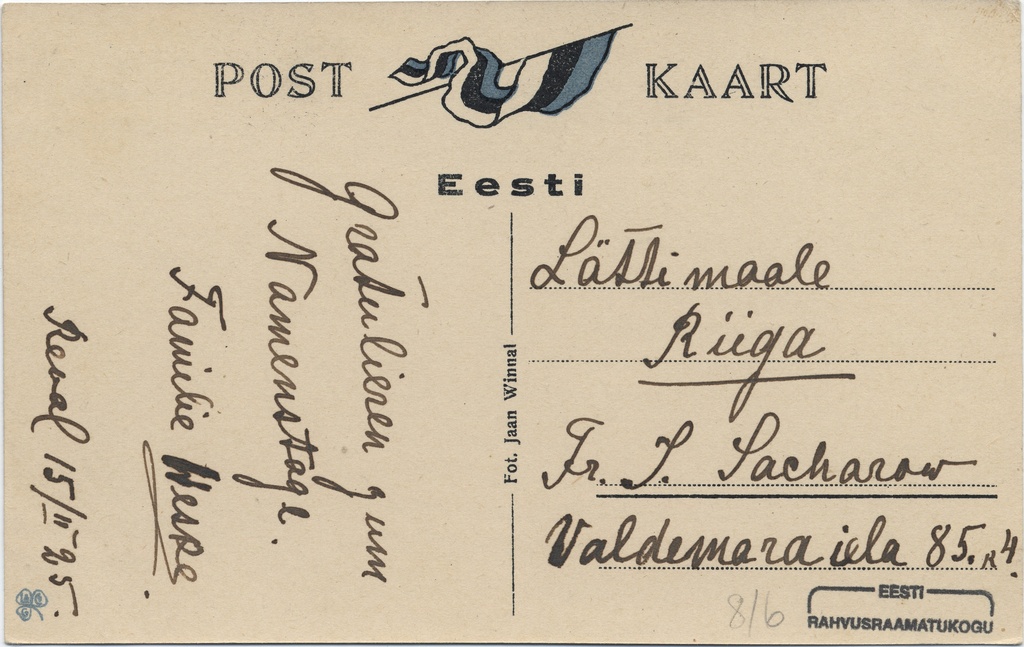 POST KAART
Eesti
Gratulieren zum
Namenstage.
Familie Weske.
Reval 15/II 25.
Fot. Jaan Winnal
Lätti maale
Riiga
Fr. J. Sacharow
Valdemara iela 85. k 4.
8/6
EESTI
RAHVUSRAAMATUKOGU